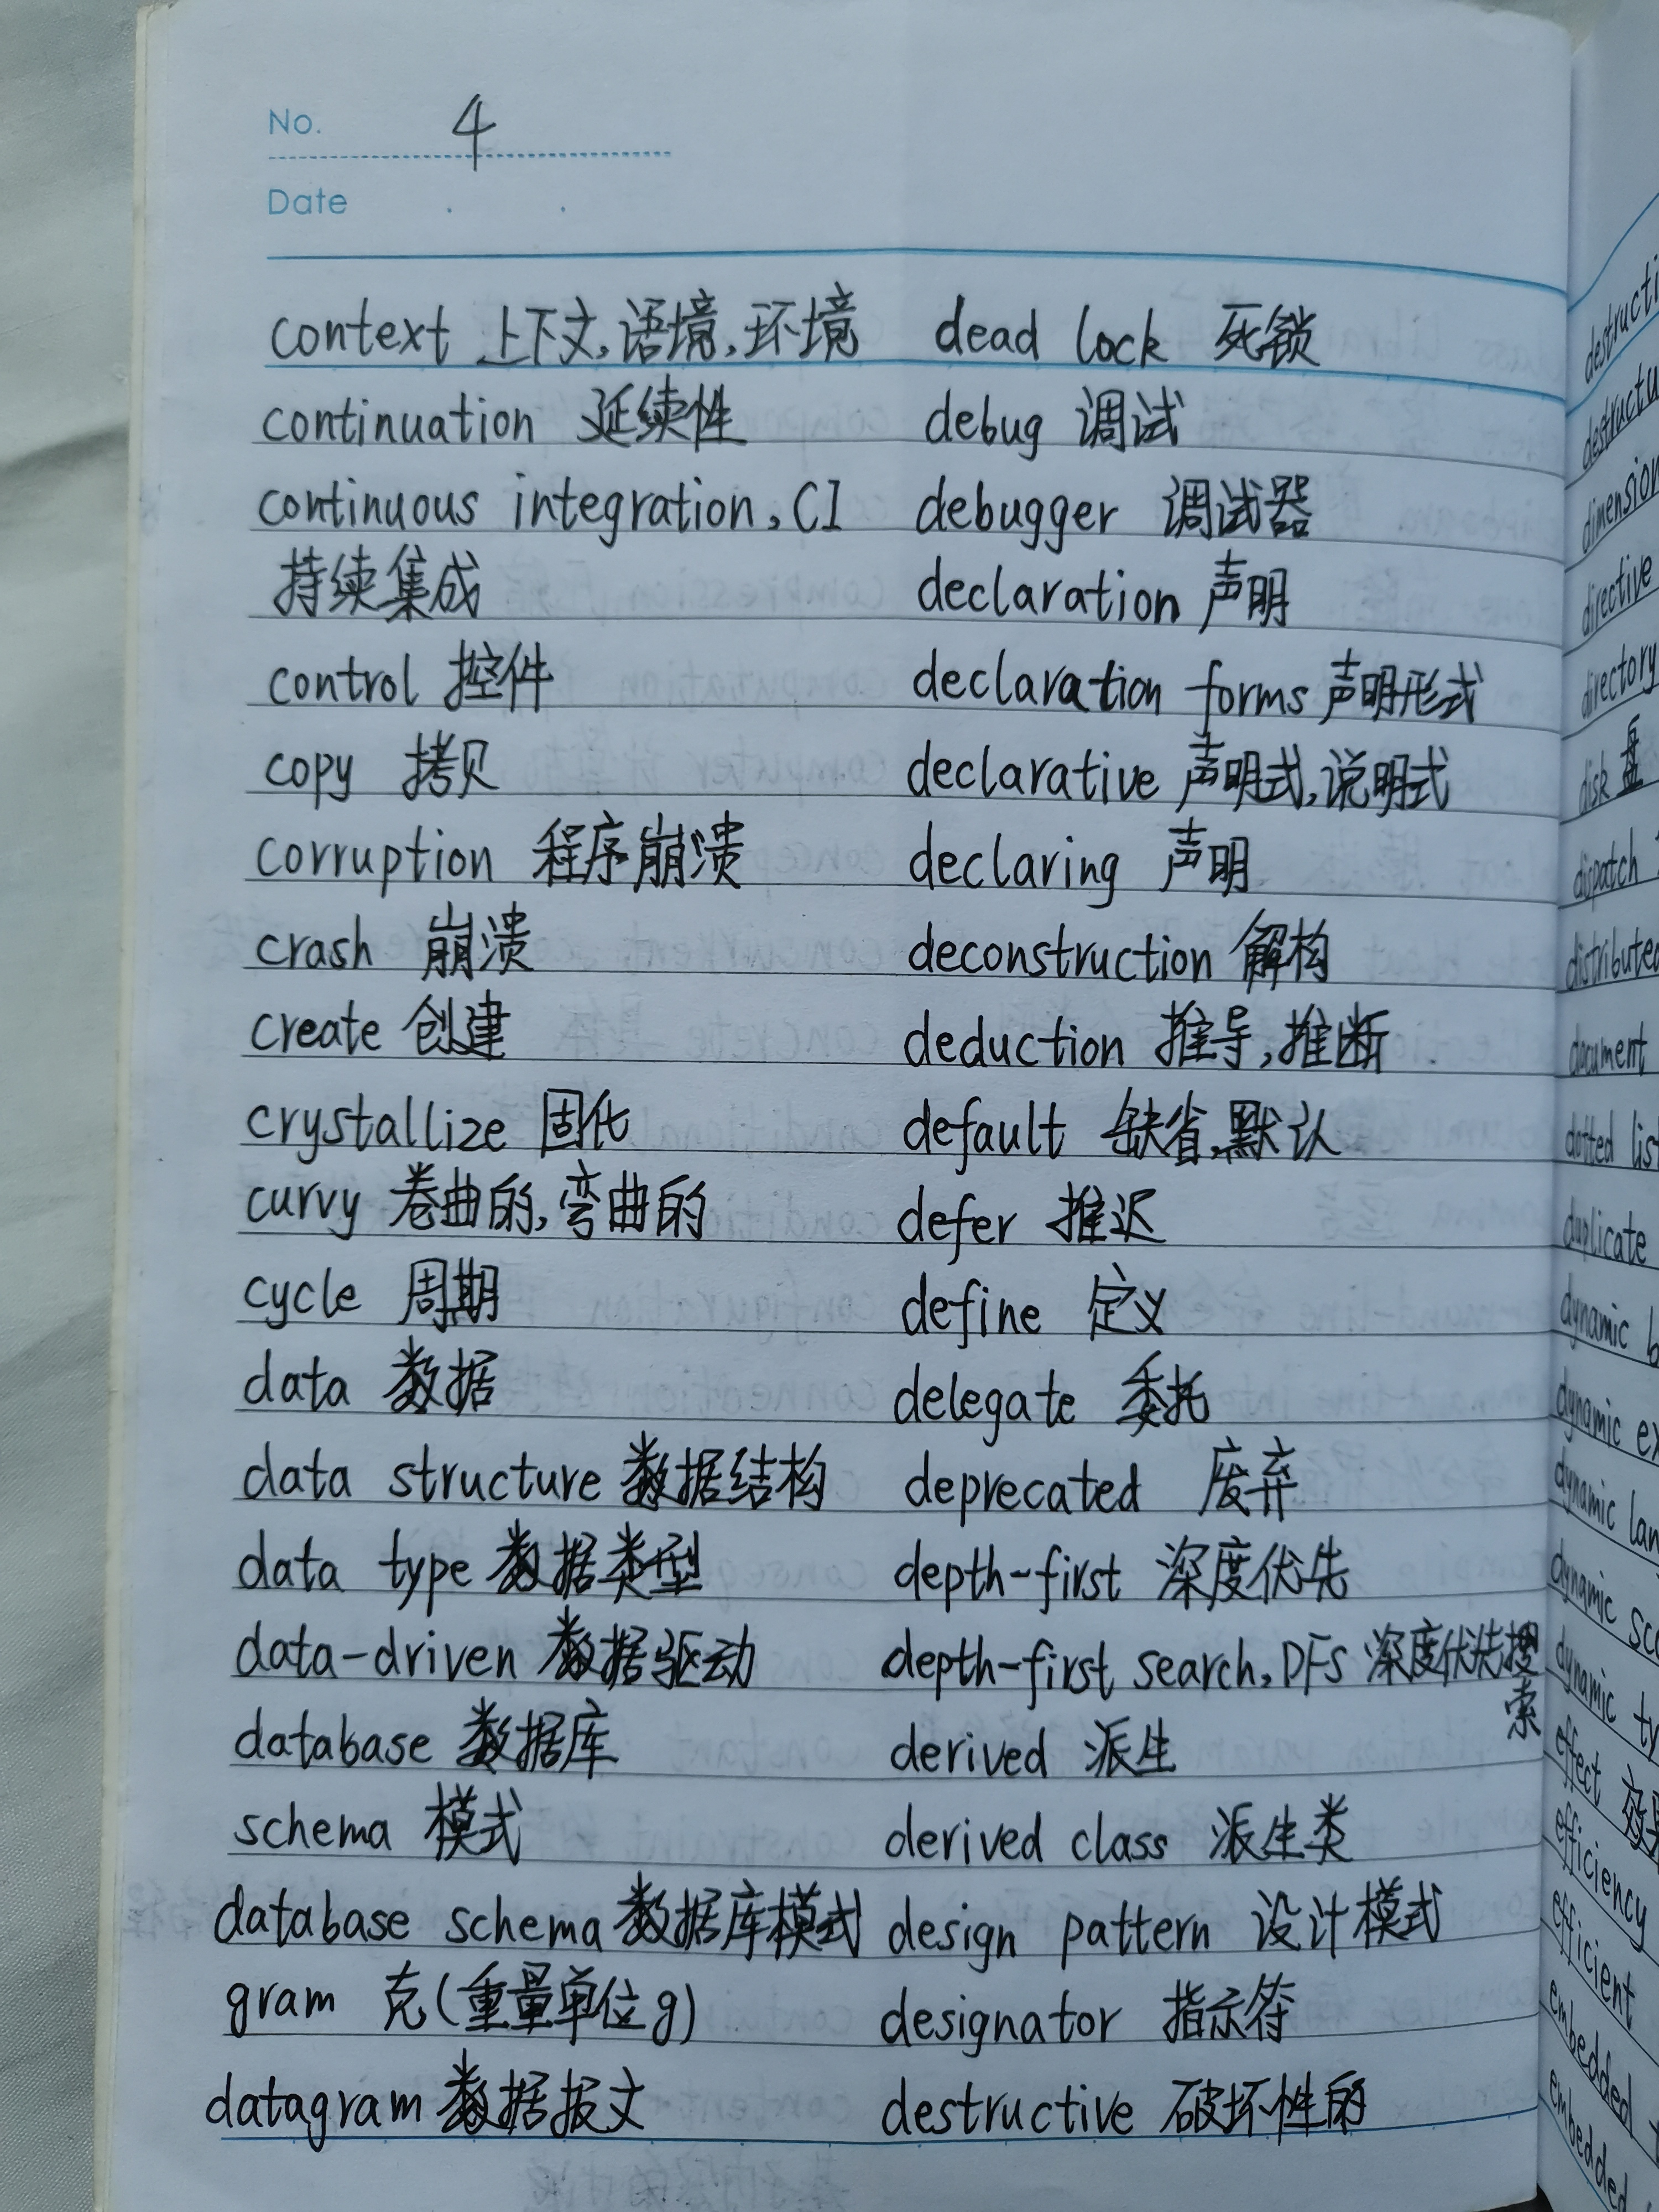 No. 4
Date
context 上下文,语境,环境
continuation 延续性
continuous integration, CI
持续集成
control 控件
copy 拷贝
corruption 程序崩溃
crash 崩溃
create 创建
crystallize 固化
curvy 卷曲的,弯曲的
cycle 周期
data 数据
data structure 数据结构
data type 数据类型
data-driven 数据驱动
database 数据库
schema 模式
database schema 数据库模式
gram 克(重量单位g)
datagram 数据报文
dead lock 死锁
debug 调试
debugger 调试器
declaration 声明
declaration forms 声明形式
declarative 声明式,说明式
declaring 声明
deconstruction 解构
deduction 推导,推断
default 缺省,默认
defer 推迟
define 定义
delegate 委托
deprecated 废弃
depth-first 深度优先
depth-first search, DFS 深度优先搜
索
derived 派生
derived class 派生类
design pattern 设计模式
designator 指示符
destructive 破坏性的
directive
directory
disk 盘
dispatch
document
duplicate
dynamic
dynamic
dynamic
dynamic
dynamic
effect 效果
efficiency
efficient
embedded
embedded